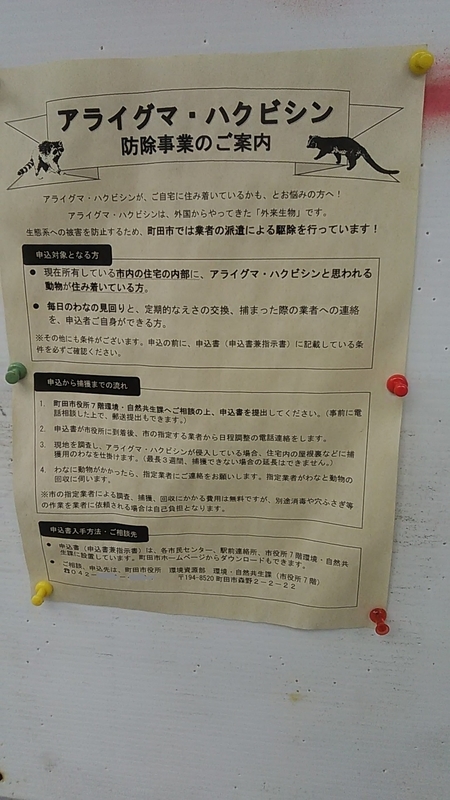 アライグマ・ハクビシン
防除事業のご案内
アライグマ・ハクビシンが、ご自宅に住み着いているかも、とお悩みの方へ！
アライグマ・ハクビシンは、外国からやってきた「外来生物」です。
生態系への被害を防止するため、町田市では業者の派遣による駆除を行っています！
申込対象となる方
● 現在所有している市内の住宅の内部に、アライグマ・ハクビシンと思われる
動物が住み着いている方。
● 毎日のわなの見回りと、定期的なえさの交換、捕まった際の業者への連絡
を、申込者ご自身ができる方。
※その他にも条件がございます。申込の前に、申込書（申込書兼指示書）に記載している条
件を必ずご確認ください。
申込から捕獲までの流れ
1. 町田市役所７階環境・自然共生課へご相談の上、申込書を提出してください。（事前に電
話相談した上で、郵送提出もできます。）
2. 申込書が市役所に到着後、市の指定する業者から日程調整の電話連絡をします。
3. 現地を調査し、アライグマ・ハクビシンが侵入している場合、住宅内の屋根裏などに捕
獲用のわなを仕掛けます。（最長３週間、捕獲できない場合の延長はできません。）
4. わなに動物がかかったら、指定業者にご連絡をお願いします。指定業者がわなと動物の
回収に伺います。
※市の指定業者による調査、捕獲、回収にかかる費用は無料ですが、別途消毒や穴ふさぎ等
の作業を業者に依頼される場合は自己負担となります。
申込書入手方法・ご相談先
● 申込書（申込書兼指示書）は、各市民センター、駅前連絡所、市役所７階環境・自然共
生課に設置しています。町田市ホームページからダウンロードもできます。
● ご相談、申込先は、町田市役所 環境資源部 環境・自然共生課（市役所７階）
０４２－ 〒194-8520 町田市森野２－２－２２